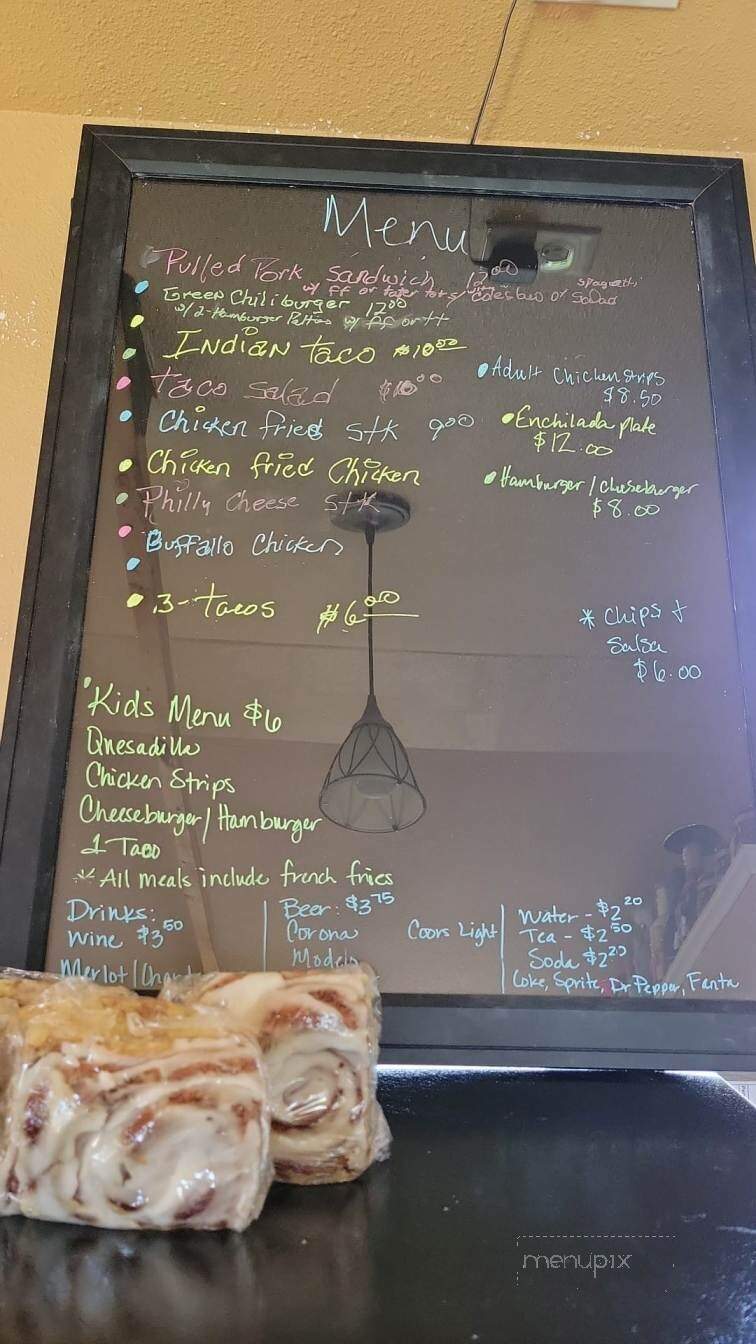 Menu
Pulled Pork Sandwich 13.00
w/ ff or tater tots, coleslaw or Salad
spagetti
Green Chiliburger 12.00
w/ 2-Hamburger Patties w/ ff or tt
Indian Taco $10.00
Taco Salad $10.00
Chicken fried Stk 9.00
Chicken fried Chicken
Philly Cheese Stk
Buffallo Chicken
3-Tacos $6.00
Adult Chicken strips
$8.50
Enchilada plate
$12.00
Hamburger/cheeseburger
$8.00
* Chips &
Salsa
$6.00
Kids Menu $6
Quesadilla
Chicken Strips
Cheeseburger/Hamburger
1 Taco
* All meals include french fries
Drinks:
Wine $3.50
Merlot/
Beer: $3.75
Corona
Modelo
Coors Light
Water - $2.20
Tea - $2.50
Soda $2.20
Coke, Sprite, Dr Pepper, Fanta
menupix